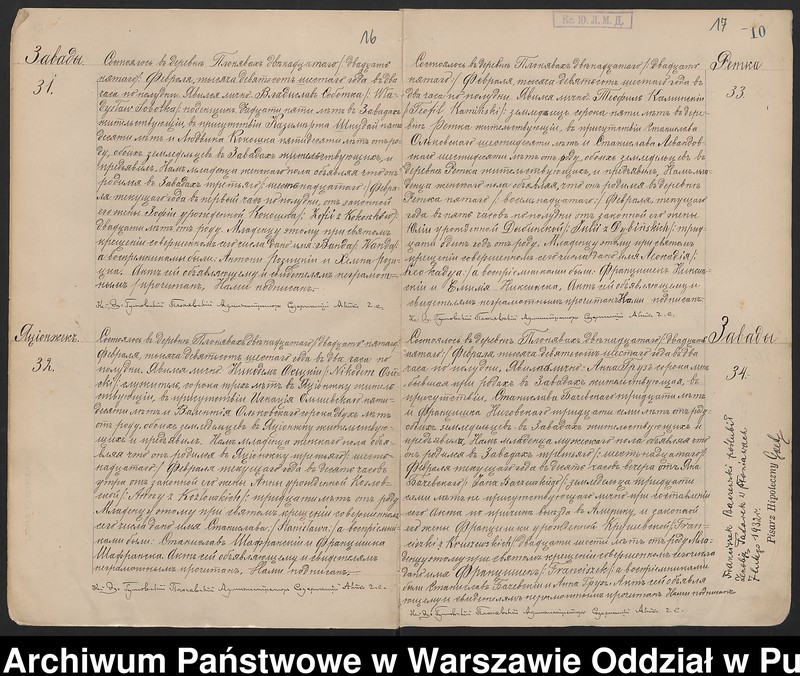 16
Завады
31.
Состоялось въ деревнѣ Плонявахъ двѣнадцатаго/:двадцать
пятаго:/ Февраля, тысяча девятьсотъ шестого года въ два
часа по полудни. Явился лично Владиславъ Соботка/: Wła-
dysław Sobotka:/ поденщикъ, двадцати пяти лѣтъ въ Завадахъ
жительствующій, въ присутствіи Казимира пяти-
десяти лѣтъ и Людвика Кокошка пятидесяти лѣтъ отъ ро-
ду, обоихъ земледѣльцевъ въ Завадахъ жительствующихъ, и
предъявилъ Намъ младенца женскаго пола объявляя что онъ
родился въ Завадахъ третьяго/: шестнадцатаго:/ Февра-
ля текущаго года въ первый часъ по полудни, отъ законной
его жены Зофіи урожденной Кокошка/: Zofii z Kokoszków:/
двадцати лѣтъ отъ роду. Младенцу этому при святомъ
крещеніи совершенномъ сего числа дано имя Ванда/: Wanda:/
а воспріемниками были: Антони и
Актъ сей объявляющему и свидѣтелямъ неграмот-
нымъ прочитанъ, Нами подписанъ.
Яціонжекъ.
32.
Состоялось въ деревнѣ Плонявахъ двѣнадцатаго/: двадцать пятаго:/
Февраля, тысяча девятьсотъ шестого года въ два часа по
полудни. Явился лично Никодимъ Осицкій/: Nikodem Osic-
ki:/ служитель, сорока трехъ лѣтъ въ Яціонжку житель-
ствующій, въ присутствіи Игнація Ольшевскаго пяти-
десяти лѣтъ и Валентія Ольковскаго сорока двухъ лѣтъ
отъ роду, обоихъ земледѣльцевъ въ Яціонжку жительствую-
щихъ и предъявилъ Намъ младенца женскаго пола объя-
вляя что онъ родился въ Яціонжку третьяго/: шест-
надцатаго:/ Февраля текущаго года въ десять часовъ
утра отъ законной его жены Анны урожденной Козлов-
ской/: Anny z Kozłowskich:/ тридцати лѣтъ отъ роду.
Младенцу этому при святомъ крещеніи совершенномъ
сего числа дано имя Станислава/: Stanisława:/ а воспріемни-
ками были: Станиславъ Шафранскій и Францишка
Шафранска. Актъ сей объявляющему и свидѣтелямъ
неграмотнымъ прочитанъ, Нами подписанъ.
Кс. Ю. Л. М. Д.
17
10
Ретка
33.
Состоялось въ деревнѣ Плонявахъ двѣнадцатаго/: двадцать
пятаго:/ Февраля, тысяча девятьсотъ шестого года въ
два часа по полудни. Явился лично Теофиль Каминскій
/:Teofil Kamiński:/ земледѣлецъ сорока пяти лѣтъ въ дере-
внѣ Ретка жительствующій, въ присутствіи Станислава
Ольковскаго шестидесяти лѣтъ и Станислава Левандов-
скаго шестидесяти лѣтъ отъ роду, обоихъ земледѣльцевъ въ
деревнѣ Ретка жительствующихъ, и предъявилъ Намъ мла-
денца женскаго пола объявляя, что онъ родился въ деревнѣ
Ретка пятаго/: восемнадцатаго:/ Февраля, текущаго
года въ пять часовъ по полудни отъ законной его жены
Юліи урожденной Дыбинской/: Julii z Dybińskich:/ трид-
цати одинъ годъ отъ роду. Младенцу этому при святомъ
крещеніи совершенномъ сего числа дано имя Леокадія/:
Leokadya:/ а воспріемниками были: Францишекъ
и Емилія Актъ сей объявляющему и
свидѣтелямъ неграмотнымъ прочитанъ Нами подписанъ.
Завады
34.
Состоялось въ деревнѣ Плонявахъ двѣнадцатаго/: двадцать
пятаго:/ Февраля, тысяча девятьсотъ шестого года въ два
часа по полудни. Явилась лично Анна Грузъ сорока лѣтъ
бывшая при родахъ въ Завадахъ жительствующая, въ
присутствіи Станислава Бачевскаго тридцати лѣтъ
и Францишка тридцати семи лѣтъ отъ роду,
обоихъ земледѣльцевъ въ Завадахъ жительствующихъ и
предъявила Намъ младенца мужескаго пола объявляя что
онъ родился въ Завадахъ третьяго/: шестнадцатаго:/
Февраля текущаго года въ десять часовъ вечера отъ Яна
Бачевскаго/: Jana Baczewskiego:/ земледѣльца тридцати
семи лѣтъ не присутствующаго лично при составленіи
сего Акта по причинѣ выѣзда въ Америку, и законной
его жены Францишки урожденной Крушевской/: Fran-
ciszki z Kruszewskich:/ двадцати шести лѣтъ отъ роду. Мла-
денцу этому при святомъ крещеніи совершенномъ сего числа
дано имя Францишекъ/: Franciszek:/ а воспріемниками
были Станиславъ Бачевскій и Анна Грузъ. Актъ сей объявля-
ющему и свидѣтелямъ неграмотнымъ прочитанъ Нами подписанъ
Franciszek Baczewski poślubił
w Płoniawach
7 lutego 1932 r.
Pisarz Hipoteczny
Archiwum Państwowe w Warszawie Oddział w Pu